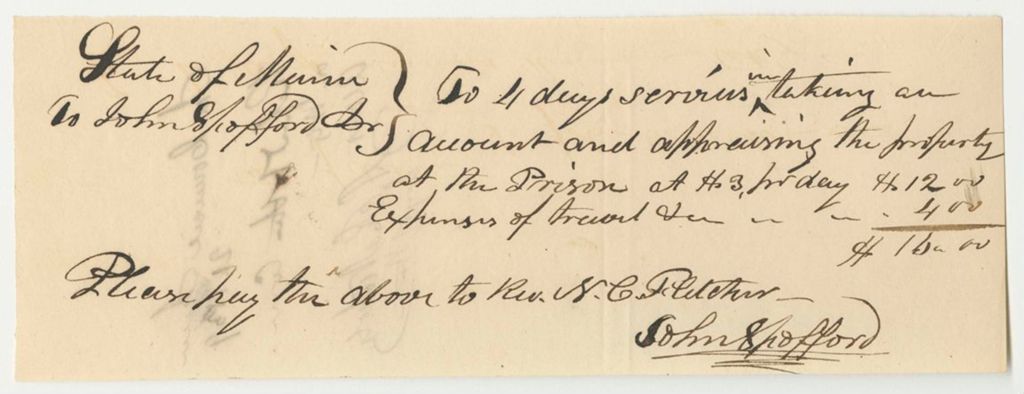 State of Maine
To John Spofford Dr
To 4 days servises in taking an
account and appraising the property
at the Prison at $3, pr day $12 00
Expenses of travel &c " " " 4 00
$16.00
Please pay the above to Rev. N. C. Fletcher
John Spofford